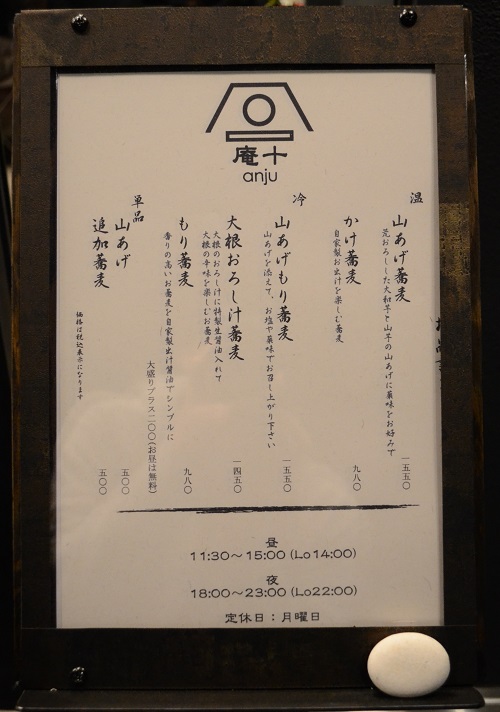 庵十
anju
温
山あげ蕎麦 一五五〇
荒おろしした大和芋と山芋の山あげに薬味をお好みで
かけ蕎麦 九八〇
自家製お出汁を楽しむ蕎麦
冷
山あげもり蕎麦 一五五〇
山あげを添えて、お塩や薬味でお召し上がり下さい
大根おろし汁蕎麦 一四五〇
大根のおろし汁に特製生醤油入れて
大根の辛味を楽しむお蕎麦
もり蕎麦 九八〇
香りの高いお蕎麦を自家製出汁醤油でシンプルに
大盛りプラス二〇〇(お昼は無料)
単品
山あげ 五〇〇
追加蕎麦 五〇〇
価格は税込表示になります
昼
11:30～15:00(Lo14:00)
夜
18:00～23:00(Lo22:00)
定休日：月曜日